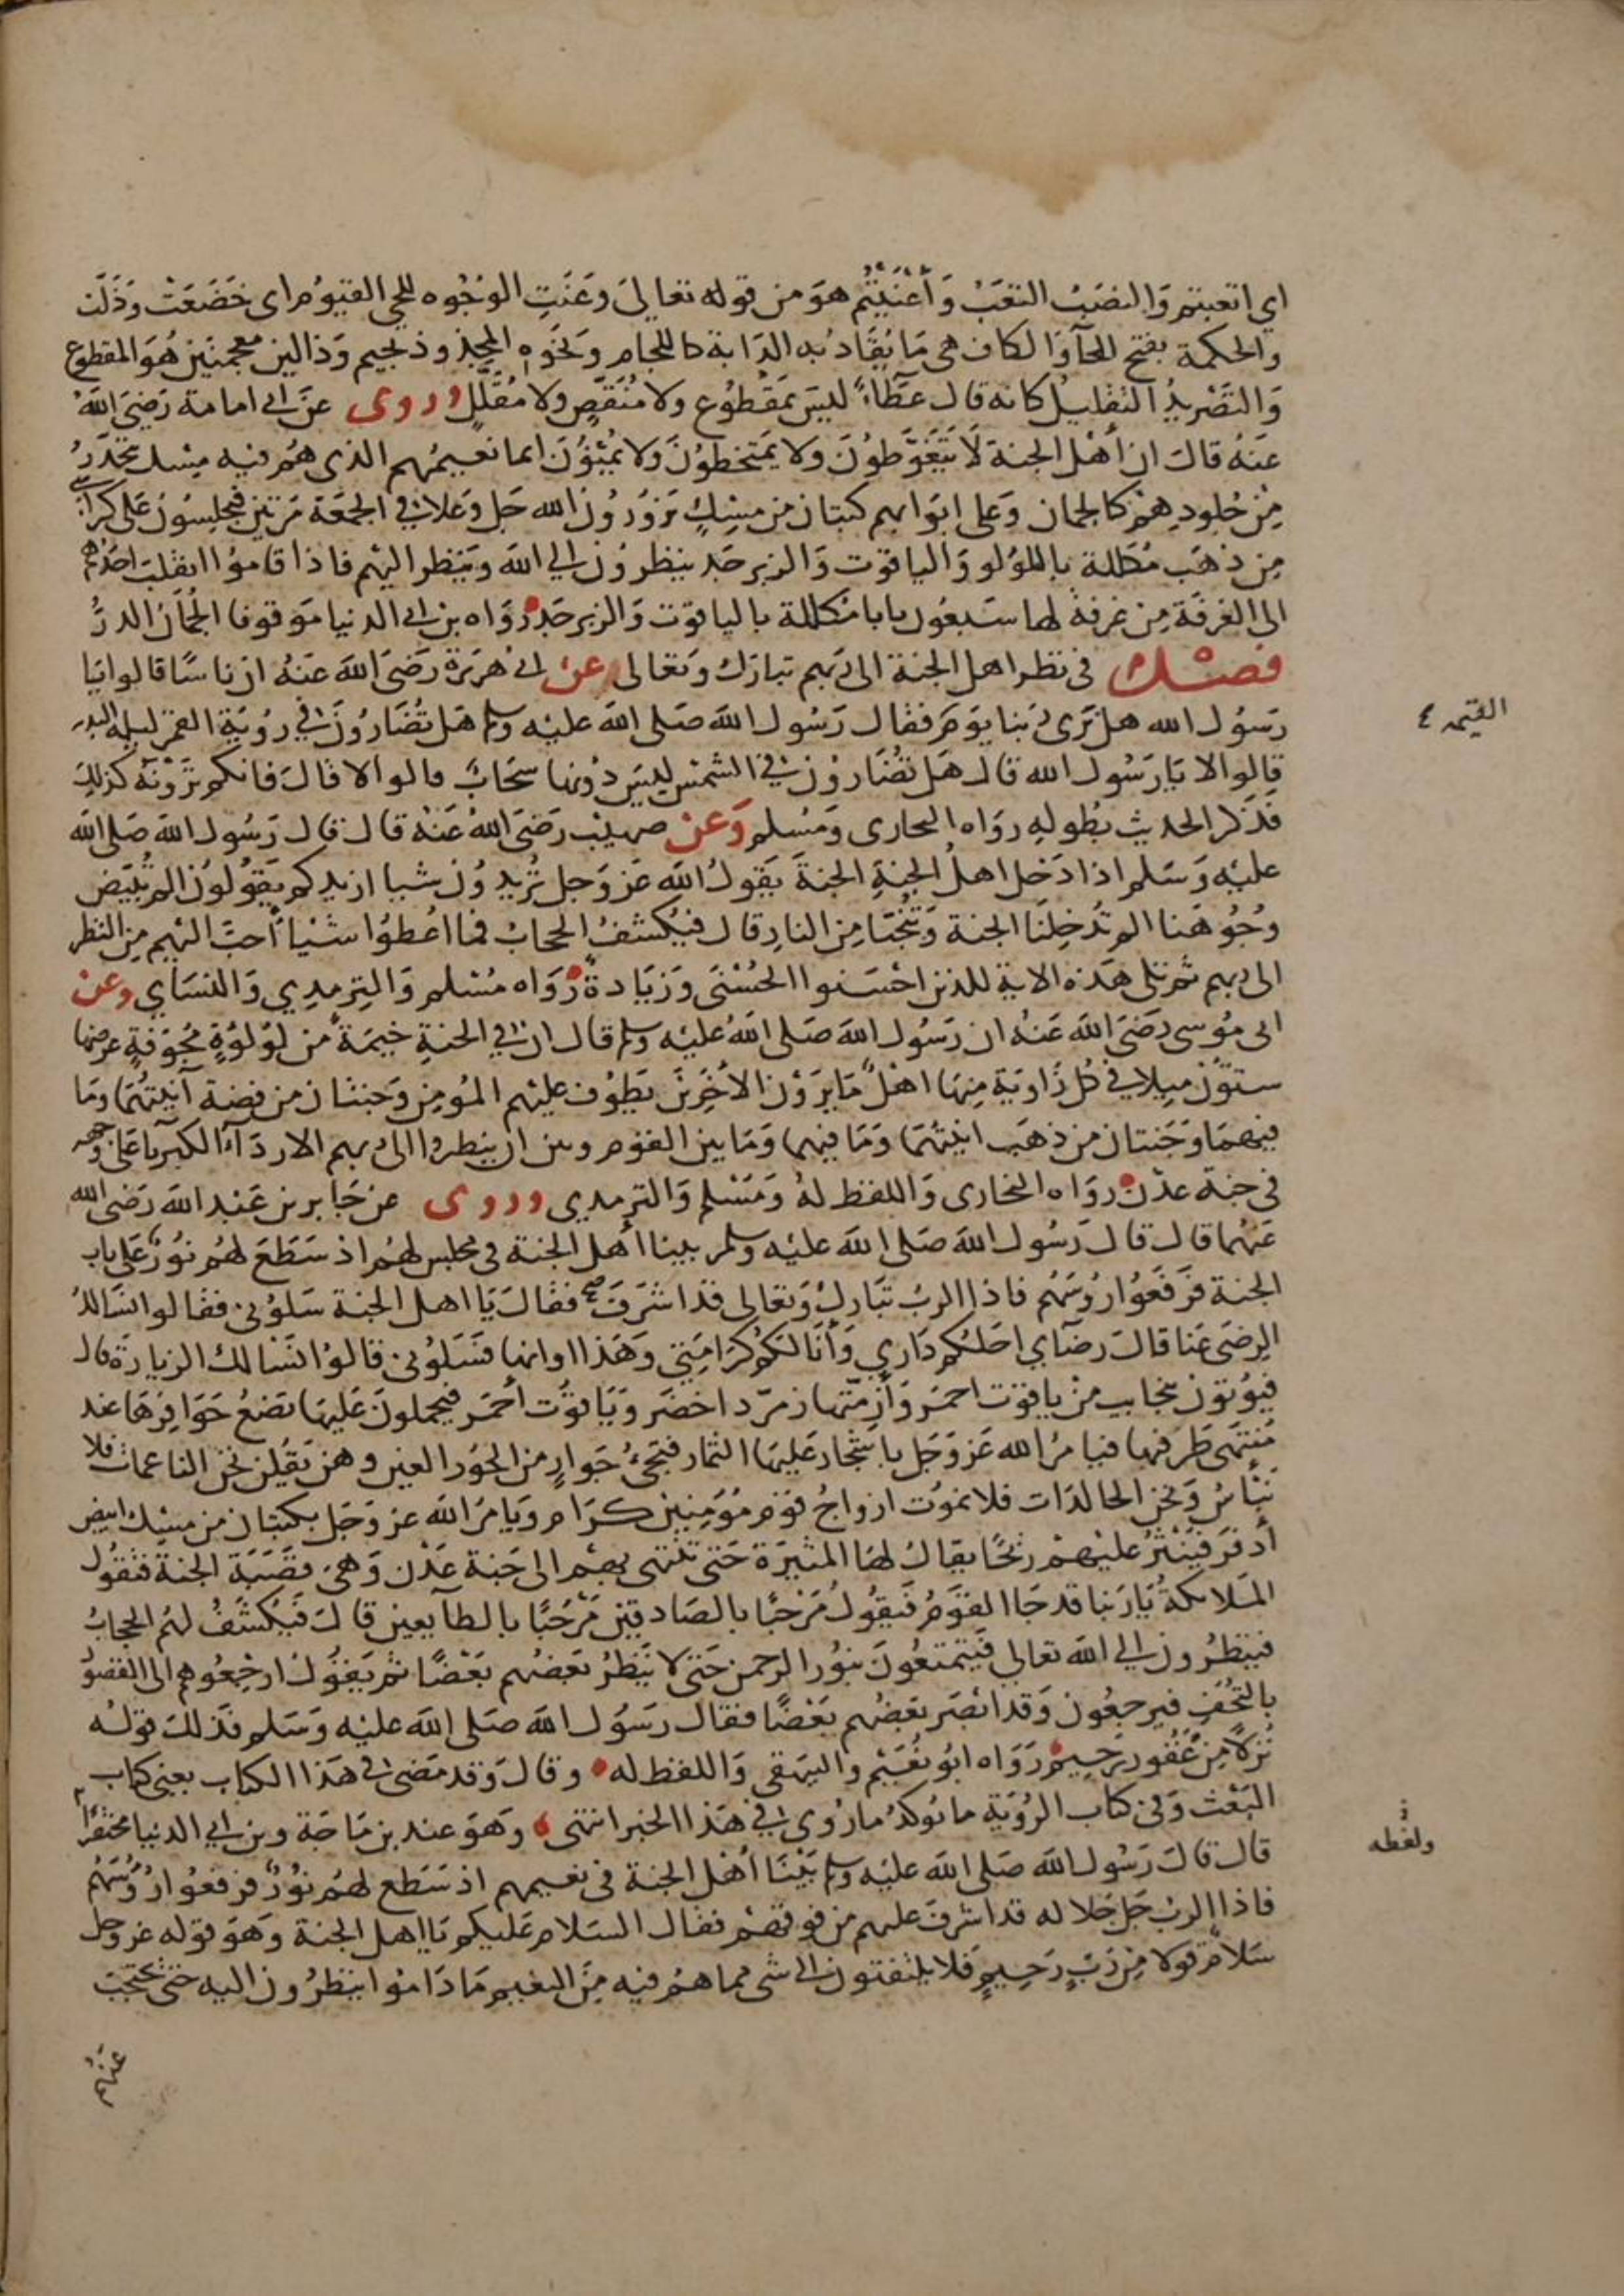 اي اتعبتم وَالنصَبُ التعَبُ وَأعْنَيْتُم هوَ من قوله تعالي وَعَنَتِ الوُجُوه للحي القيوُم اى خَضَعَتْ وَذَلَّت
والحكمة بفتح الحآوَالكاف هى مَا يُقَادُ به الدَابة كاللجام وَنحَوه المجذوذ بجيم وَذالين معجمتين هُوَ المقطوع
وَالتَصْريدُ التقليلُ كانه قال عَطآءً ليسَ بمَقْطوُع ولا مُنَقَّصٍ ولا مُقَلَّلٍ وروى عَن ابى امامة رَضيَ اللهُ
عَنهُ قالَ ان أهْلَ الجنة لَا يَتَغَوَّطوُنَ ولا يَمَتخطوُنَ وَلا يُمْنوُنَ انما نعيمُهم الذى هُم فيه مِسْك يتحَدَّرُ
مِن جُلودِهِمْ كالجمان وَعلى ابوَابهم كثبان من مِسْكٍ يَزوُروُنَ الله جَل وَعَلا فى الجمعَة مَرتين فيجلسُوُنَ عَلى كراسى
مِن ذهَب مُكَلله باللؤلو وَاليَاقوت وَالزبرجَد ينظروُنَ الي الله وَينظر اليهم فاذا قامُوا انقلبَ احَدُهم
الى الغرفَة مِن غرفة لها سَبعُون بابا مُكللة بالياقوت وَالزبرجَد رَوَاه بن ابى الدنيا مَوقوفا الجُمَان الدرُّ
فصْل فى نظر اهل الجنة الى رَبهم تبارَك وَتعَالى عن ابى هُرَيرَة رَضىَ الله عَنهُ ان نَاسًا قالوا يَا
رَسوُل الله هل نَرى رَبنا يوَمَ فقال رَسُول الله صَلى الله عليْه وسلم هَل تُضَاروُنَ فى رؤيَة القمر ليلة البدر
قالوا لا يَا رَسُول الله قال هَل تُضَاروُن فى الشمس ليسَ دوُنها سَحَابٌ قالوا لا قالَ فانكم تَرَوْنَه كذلِكَ
فذكر الحديث بطُولهِ روَاه البخارى وَمُسْلم وَعَن صهيْب رَضىَ اللهُ عَنْهُ قال قال رَسُول الله صَلى الله
عليْه وَسَلم اذا دَخل اهلُ الجنةِ الجنةَ يَقولُ الله عَز وَجل تُريدوُن شيا ازيدكم يَقوُلوُن الم تُبَيَّض
وُجُوهَنا الم تُدخِلنَا الجنة وَتُنجّنَا مِن النار قال فيُكشفُ الحجابُ فما اعُطوُا شيْئاً أحبَّ اليْهم مِن النظر
الى رَبهم ثم تلى هَذه الاية للذين احْسَنوا الحُسْنَى وَزيَادةٌ رَوَاه مُسْلم وَالتِرمِدِي وَالنسَاي وعن
ابى مُوسى رَضىَ الله عَنهُ ان رَسُول الله صَلى اللهُ عليْه وسلم قال ان في الجنةِ خيمَة من لوُلوُةٍ مُجُوَفةٍ عرضها
ستوُن ميلا فى كُل زَاوَيَة مِنهَا اهْلٌ مَا يرَوْن الاخَرين يَطوُف عليْهم المُومِن وَجَنتان من فضة آنِيَتُهُمَا وَمَا
فيهمَا وَجَنتان من ذهَب انيَتهُمَا وَمَا فيهمَا وَمَا بين القوم وبين ان ينظروا الى رَبهم الا ردَآءُ الكبرياءِ عَلى وجهه
فى جَنة عدْن روَاه البخارى وَاللفظ لهُ وَمُسْلم وَالترمِدى وروى عن جَابر بن عَبد الله رَضى الله
عَنهُما قال قال رَسُول الله صَلى الله عليْه وسلم بينا أهل الجنة فى مجلس لهُم اذ سَطَعَ لهُم نوُرٌ عَلى باب
الجنة فرَفَعُوا رُوسَهُم فاذا الربُ تَبَارك وَتعالى قد اشرَفَ فقالَ يَا اهل الجنة سَلوُنى فقالوا نسَالكُ
الرِضَى عَنا قالَ رضآي احَلكُم دَارِي وَأنَا لكُم كَرَامَتِي وَهَذا اوانها فسَلوُنى قالوُا نَسْالك الزيارَة قال
فيؤتون بنجايب من ياقوت احمَر وَأزمّتها زمرّد اخضَر وَيَاقوُت أحمَر فيحملونَ عَليَها تضعُ حَوَافِرَهَا عند
مُنتَهَى طَرفها فيامُر الله عَز وَجَل باشجار عَليهَا الثمار فتجىءُ جَوَارٍ من الحوُر العين وهن يَقُلن نحن الناعمات فلا
نَبْاسُ وَنحن الخالدَات فلا نموُت ازواجُ قوَم مؤمِنين كرَام وَيَامُر الله عز وَجَل بكثبان من مسْك ابيض
أذفرَ فَيَنثُرُ عليْهمْ ريْحًا يقال لهَا المثيرَة حَتى تنتهى بهِمُ الى جَنة عَدْن وَهىَ قصَبَة الجنة فتقوُل
المَلايكةُ يَا رَبنا قد جَا القوَمُ فَيقُولُ مَرحَبًا بالصَادقين مَرْحَبًا بالطآيعين قالَ فَيُكشَفُ لهُم الحجَابُ
فينظرُون الي الله تعالي فَيَتمتعُونَ بنوُر الرحمن حَتى لا يَنظرُ بَعضهُم بَعْضًا ثم يَقوُلُ ارجِعُوهم الى القصوُر
بالتُحَفِ فيرجعُون وَقد ابْصَر بَعضُهم بَعْضًا فقال رَسُول الله صَلى الله عليْه وَسَلم فذلك قولُه
نُزُلًا مِن غَفُور رَحِيم رَوَاه ابوُ نعُيْم والبيهقى وَاللفظ له وقال وَقد مَضى فى هَذا الكتاب يعنى كتاب
البَعْث وَفى كتاب الرُؤيَة مَا يوُكدُ ما رُوى فى هَذا الخبر انتهى وَهوَ عند بن مَاجَة وبن ابي الدنيا مختصَراً
قال قالَ رَسُول الله صَلى الله عليْه وسلم بَيْنَا أهْل الجنة فى نعيمهم اذ سَطع لهُم نوُرٌ فرفعوُا رُوُسَهُم
فاذا الربُ جَل جَلاله قد اشرفَ عليهم من فوقهمْ فقال السَلام عَليكم يَا اهل الجنة وَهوَ قوله عز وجل
سَلاَمٌ قولا مِن رَبٍ رَحِيمٍ فلا يلتفتون الى شى مما هُم فيه مِنَ النعيم مَا دَامُوا ينظرُون اليه حَتى يحتَجبَ
عنهم
القيمه ٤
ولفظه